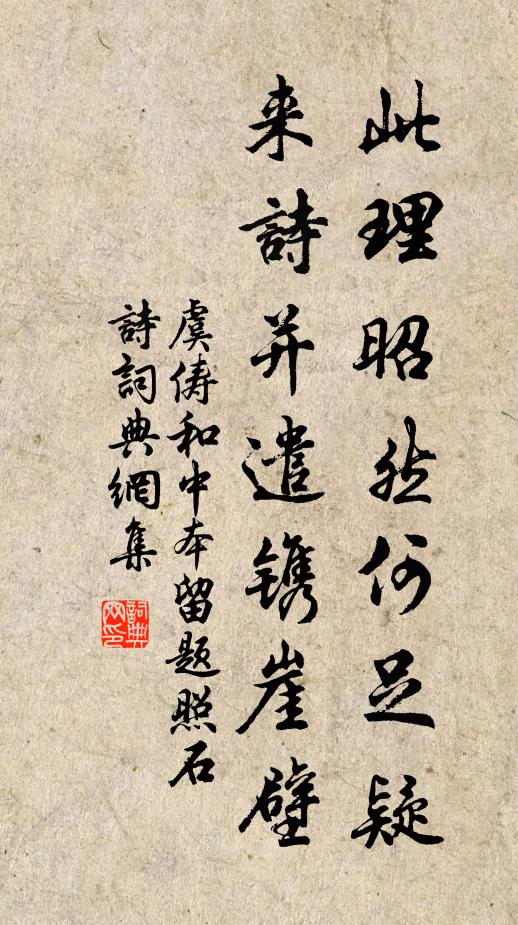 此理昭然何足疑
来詩并遣镌崖壁
虞俦和中本留题照石
詩詞典網集
詞典网印